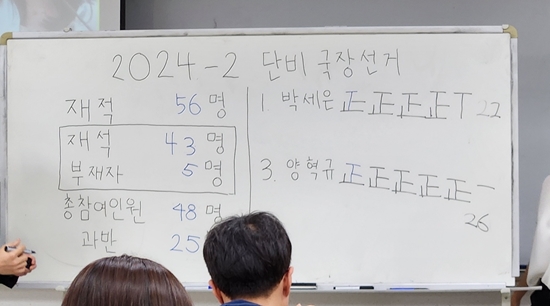 2024-2 단비 국장선거
재적 56명
재석 43명
부재자 5명
총참여인원 48명
과반 25
1. 박세은 正正正正丅 22
3. 양혁규 正正正正正一
26